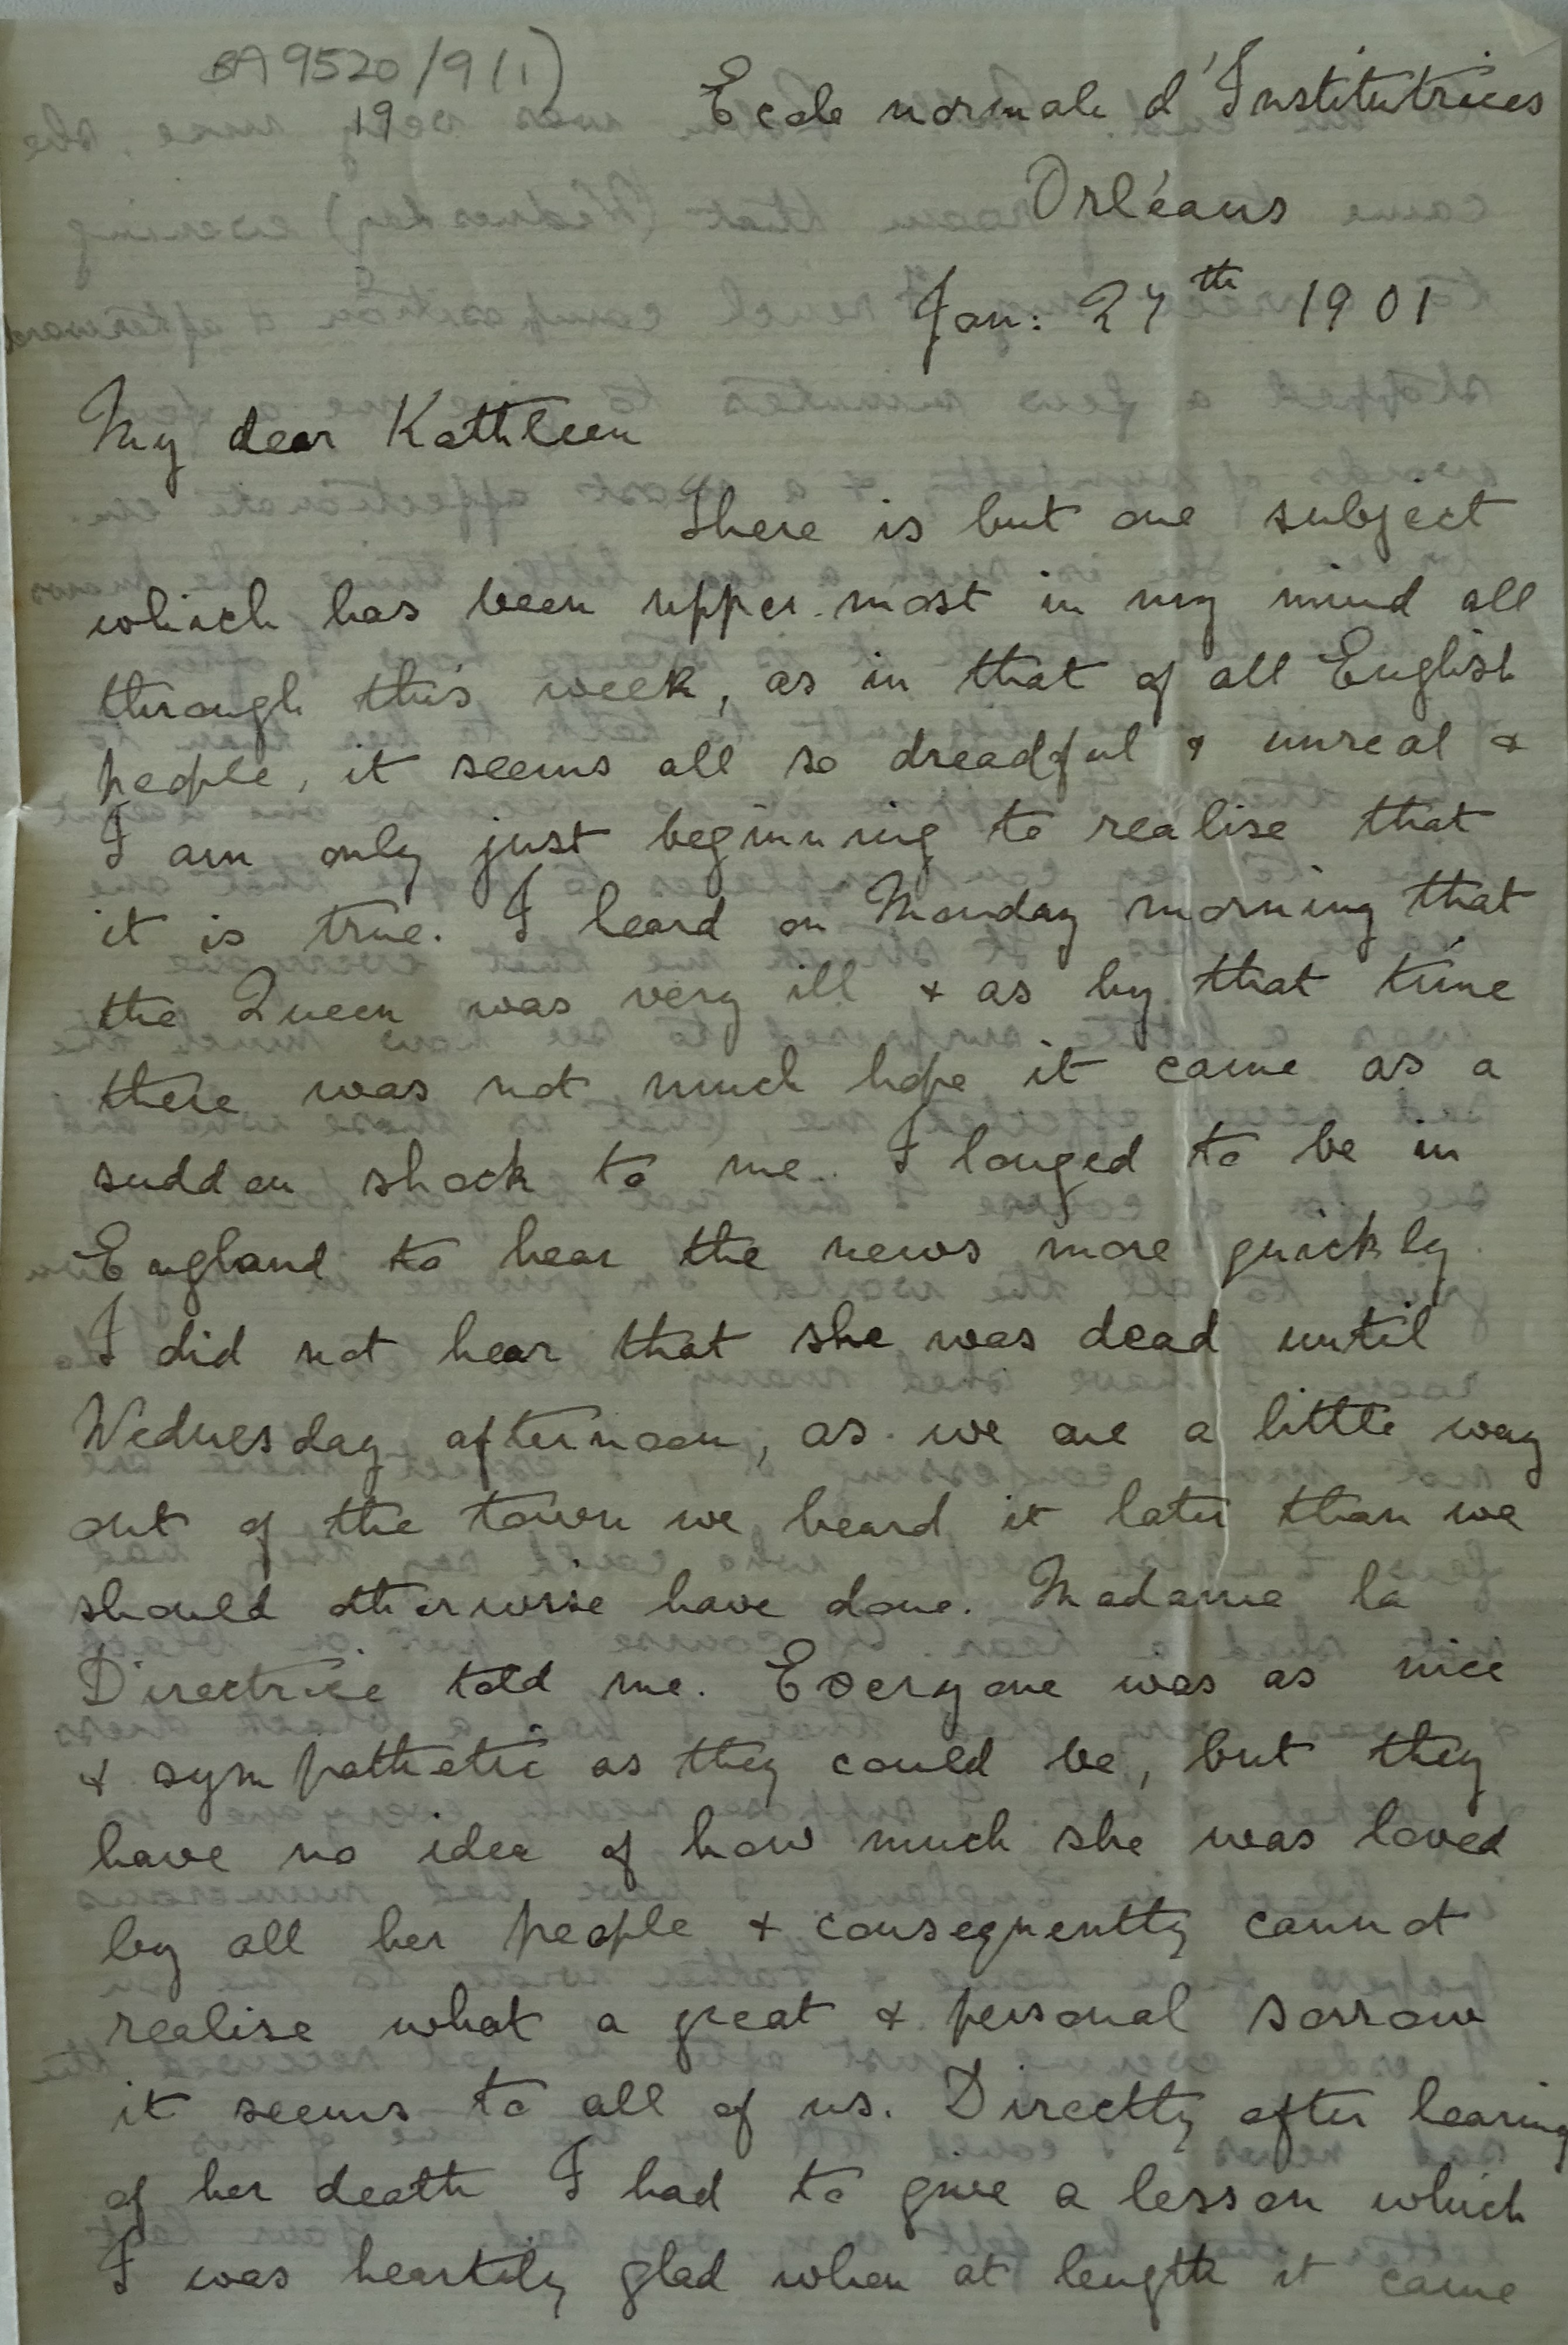 BA 9520/9(1)
19
Ecole normale d'Institutrices
Orléans
Jan: 27th 1901
My dear Kathleen
There is but one subject
which has been upper most in my mind all
through this week, as in that of all English
people, it seems all so dreadful & unreal &
I am only just beginning to realise that
it is true. I heard on Monday morning that
the Queen was very ill & as by that time
there was not much hope it came as a
sudden shock to me. I longed to be in
England to hear the news more quickly
I did not hear that she was dead until
Wednesday afternoon, as we are a little way
out of the town we heard it later than we
should otherwise have done. Madame la
Directrice told me. Everyone was as nice
& sympathetic as they could be, but they
have no idea of how much she was loved
by all her people & consequently cannot
realise what a great & personal sorrow
it seems to all of us. Directly after hearing
of her death I had to give a lesson which
I was heartily glad when at length it came